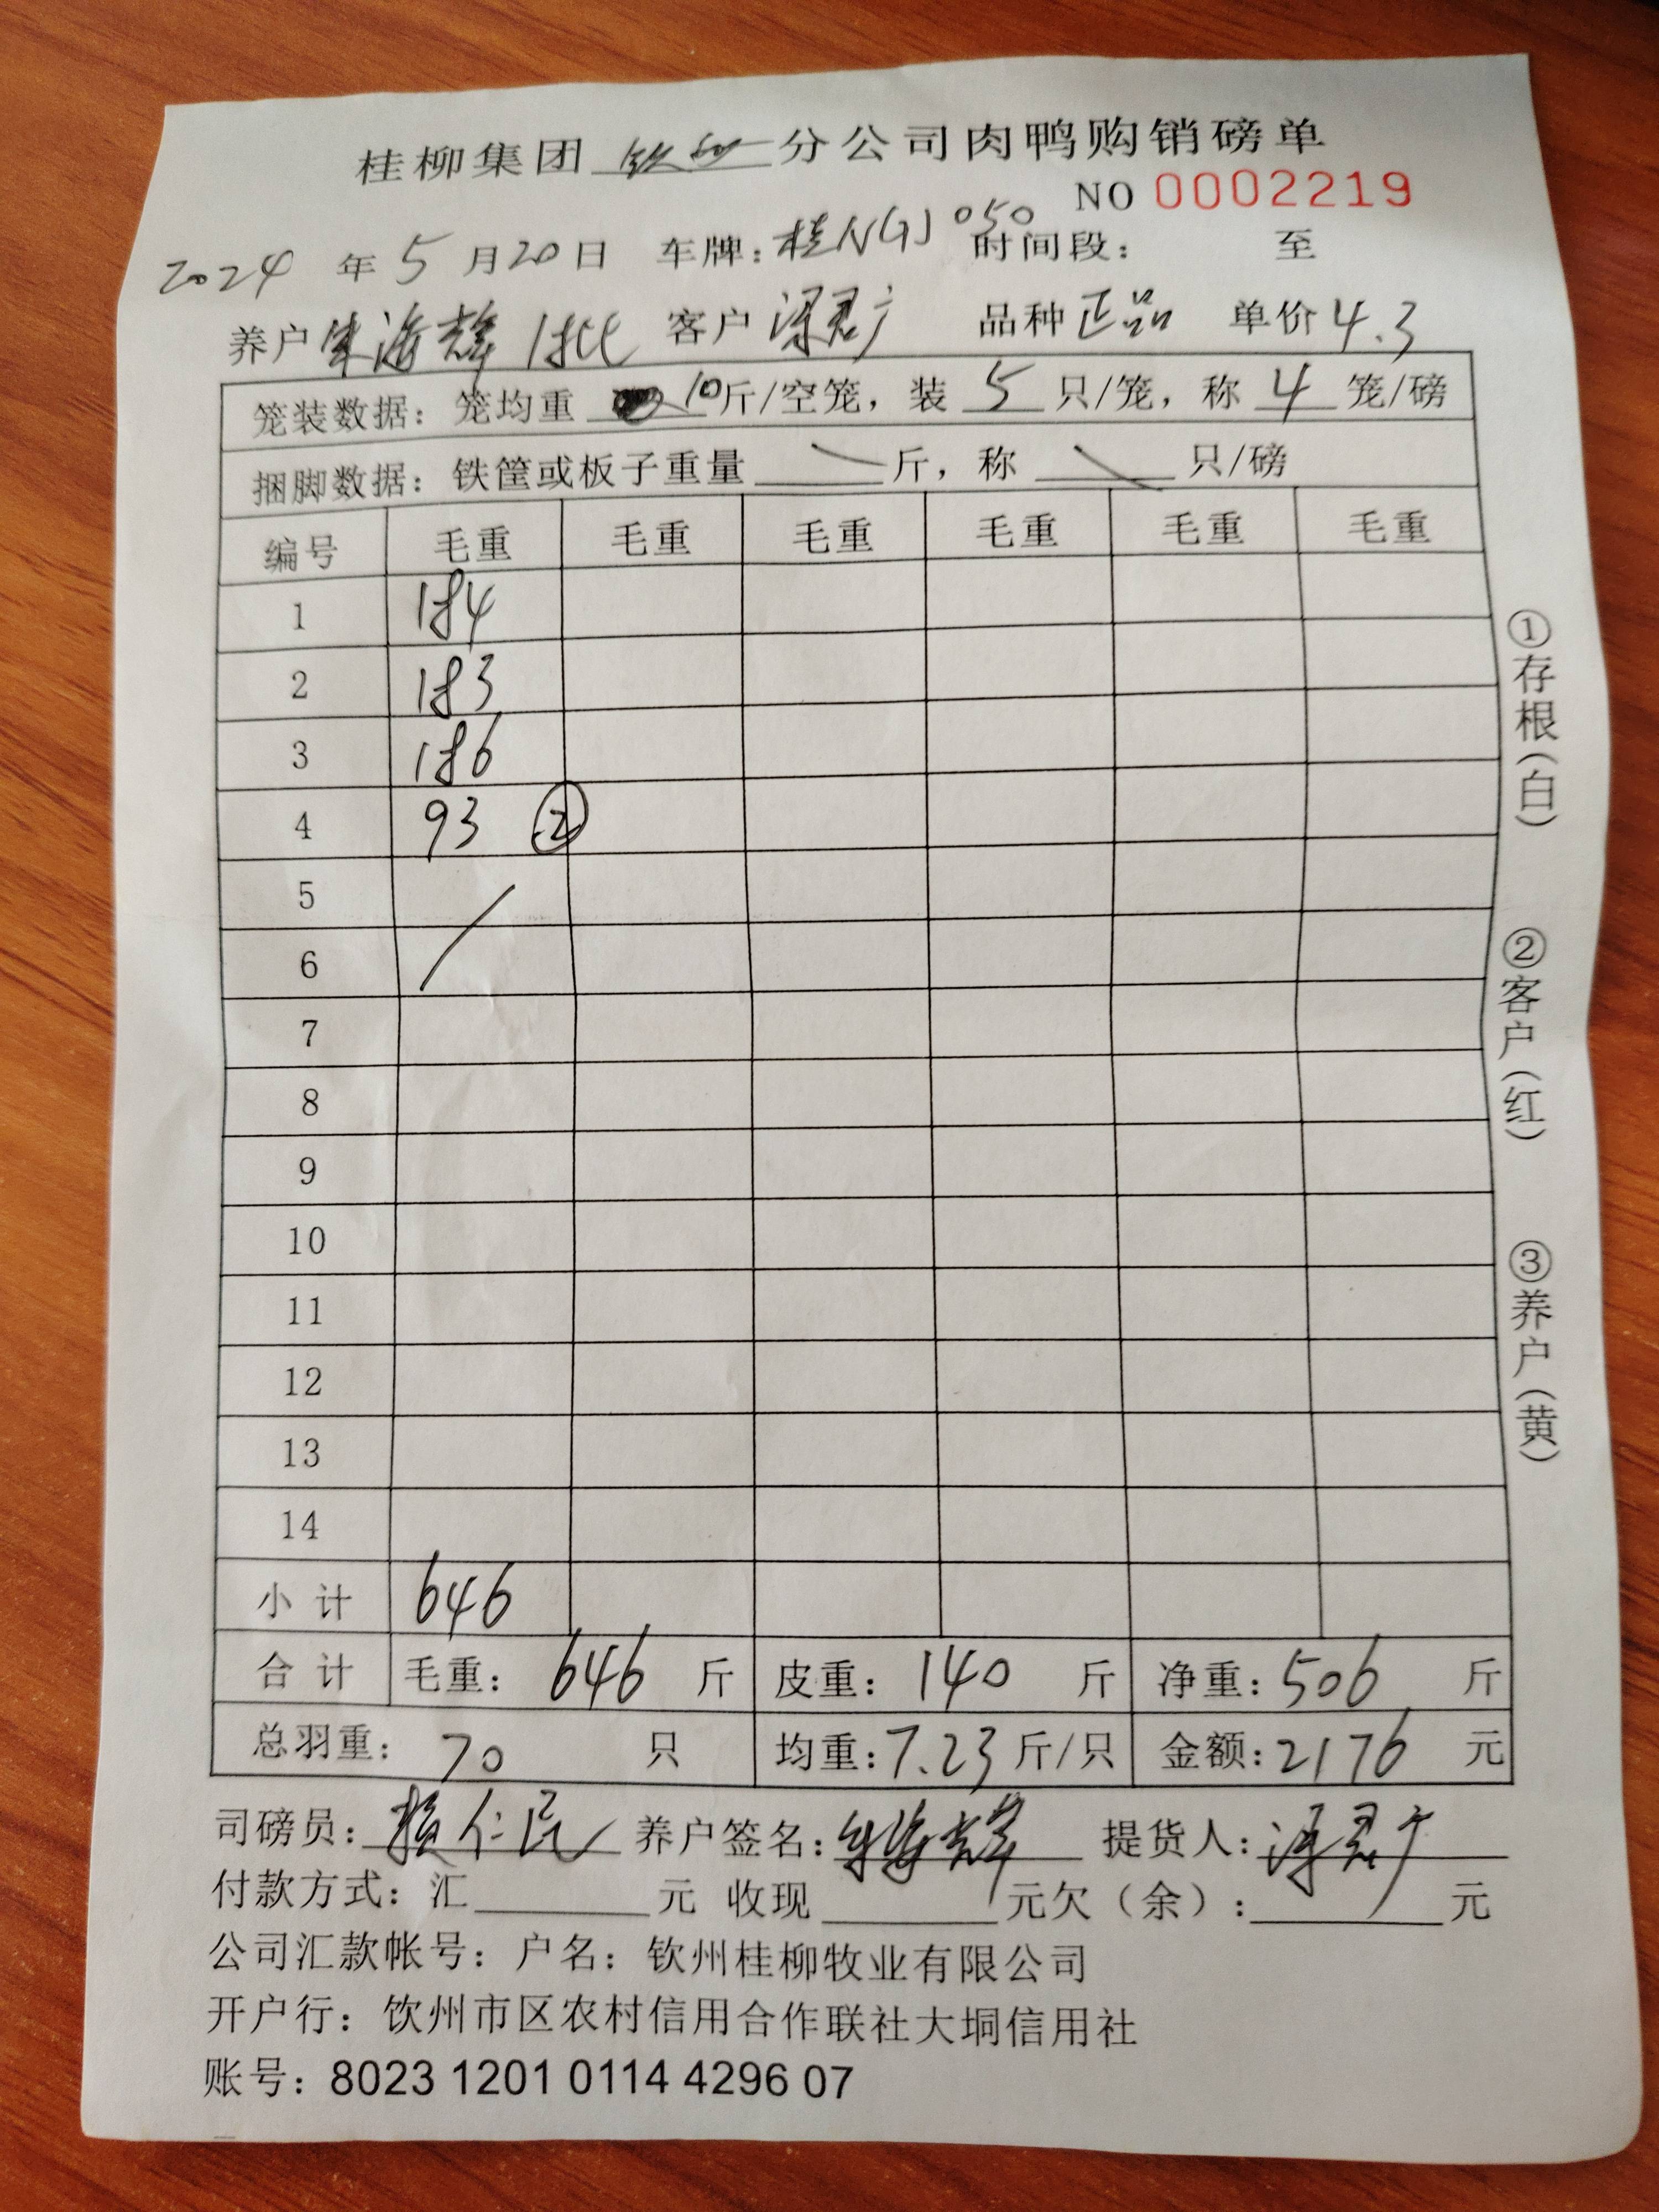 桂柳集团 钦州 分公司肉鸭购销磅单
NO 0002219
2024 年 5 月 20 日 车牌：桂N 050 时间段： 至
养户 朱海辉 1批 客户 梁君广 品种 正品 单价 4.3
笼装数据：笼均重 10 斤/空笼，装 5 只/笼，称 4 笼/磅
捆脚数据：铁筐或板子重量 斤，称 只/磅
编号 毛重 毛重 毛重 毛重 毛重 毛重
1 184
2 183
3 186
4 93 ②
5
6
7
8
9
10
11
12
13
14
小 计 646
合 计 毛重： 646 斤 皮重： 140 斤 净重：506 斤
总羽重： 70 只 均重：7.23 斤/只 金额：2176 元
司磅员：仁民 养户签名：朱海辉 提货人：梁君广
付款方式：汇 元 收现 元欠（余）： 元
公司汇款帐号：户名：钦州桂柳牧业有限公司
开户行：饮州市区农村信用合作联社大垌信用社
账号：8023 1201 0114 4296 07
①存根（白）
②客户（红）
③养户（黄）